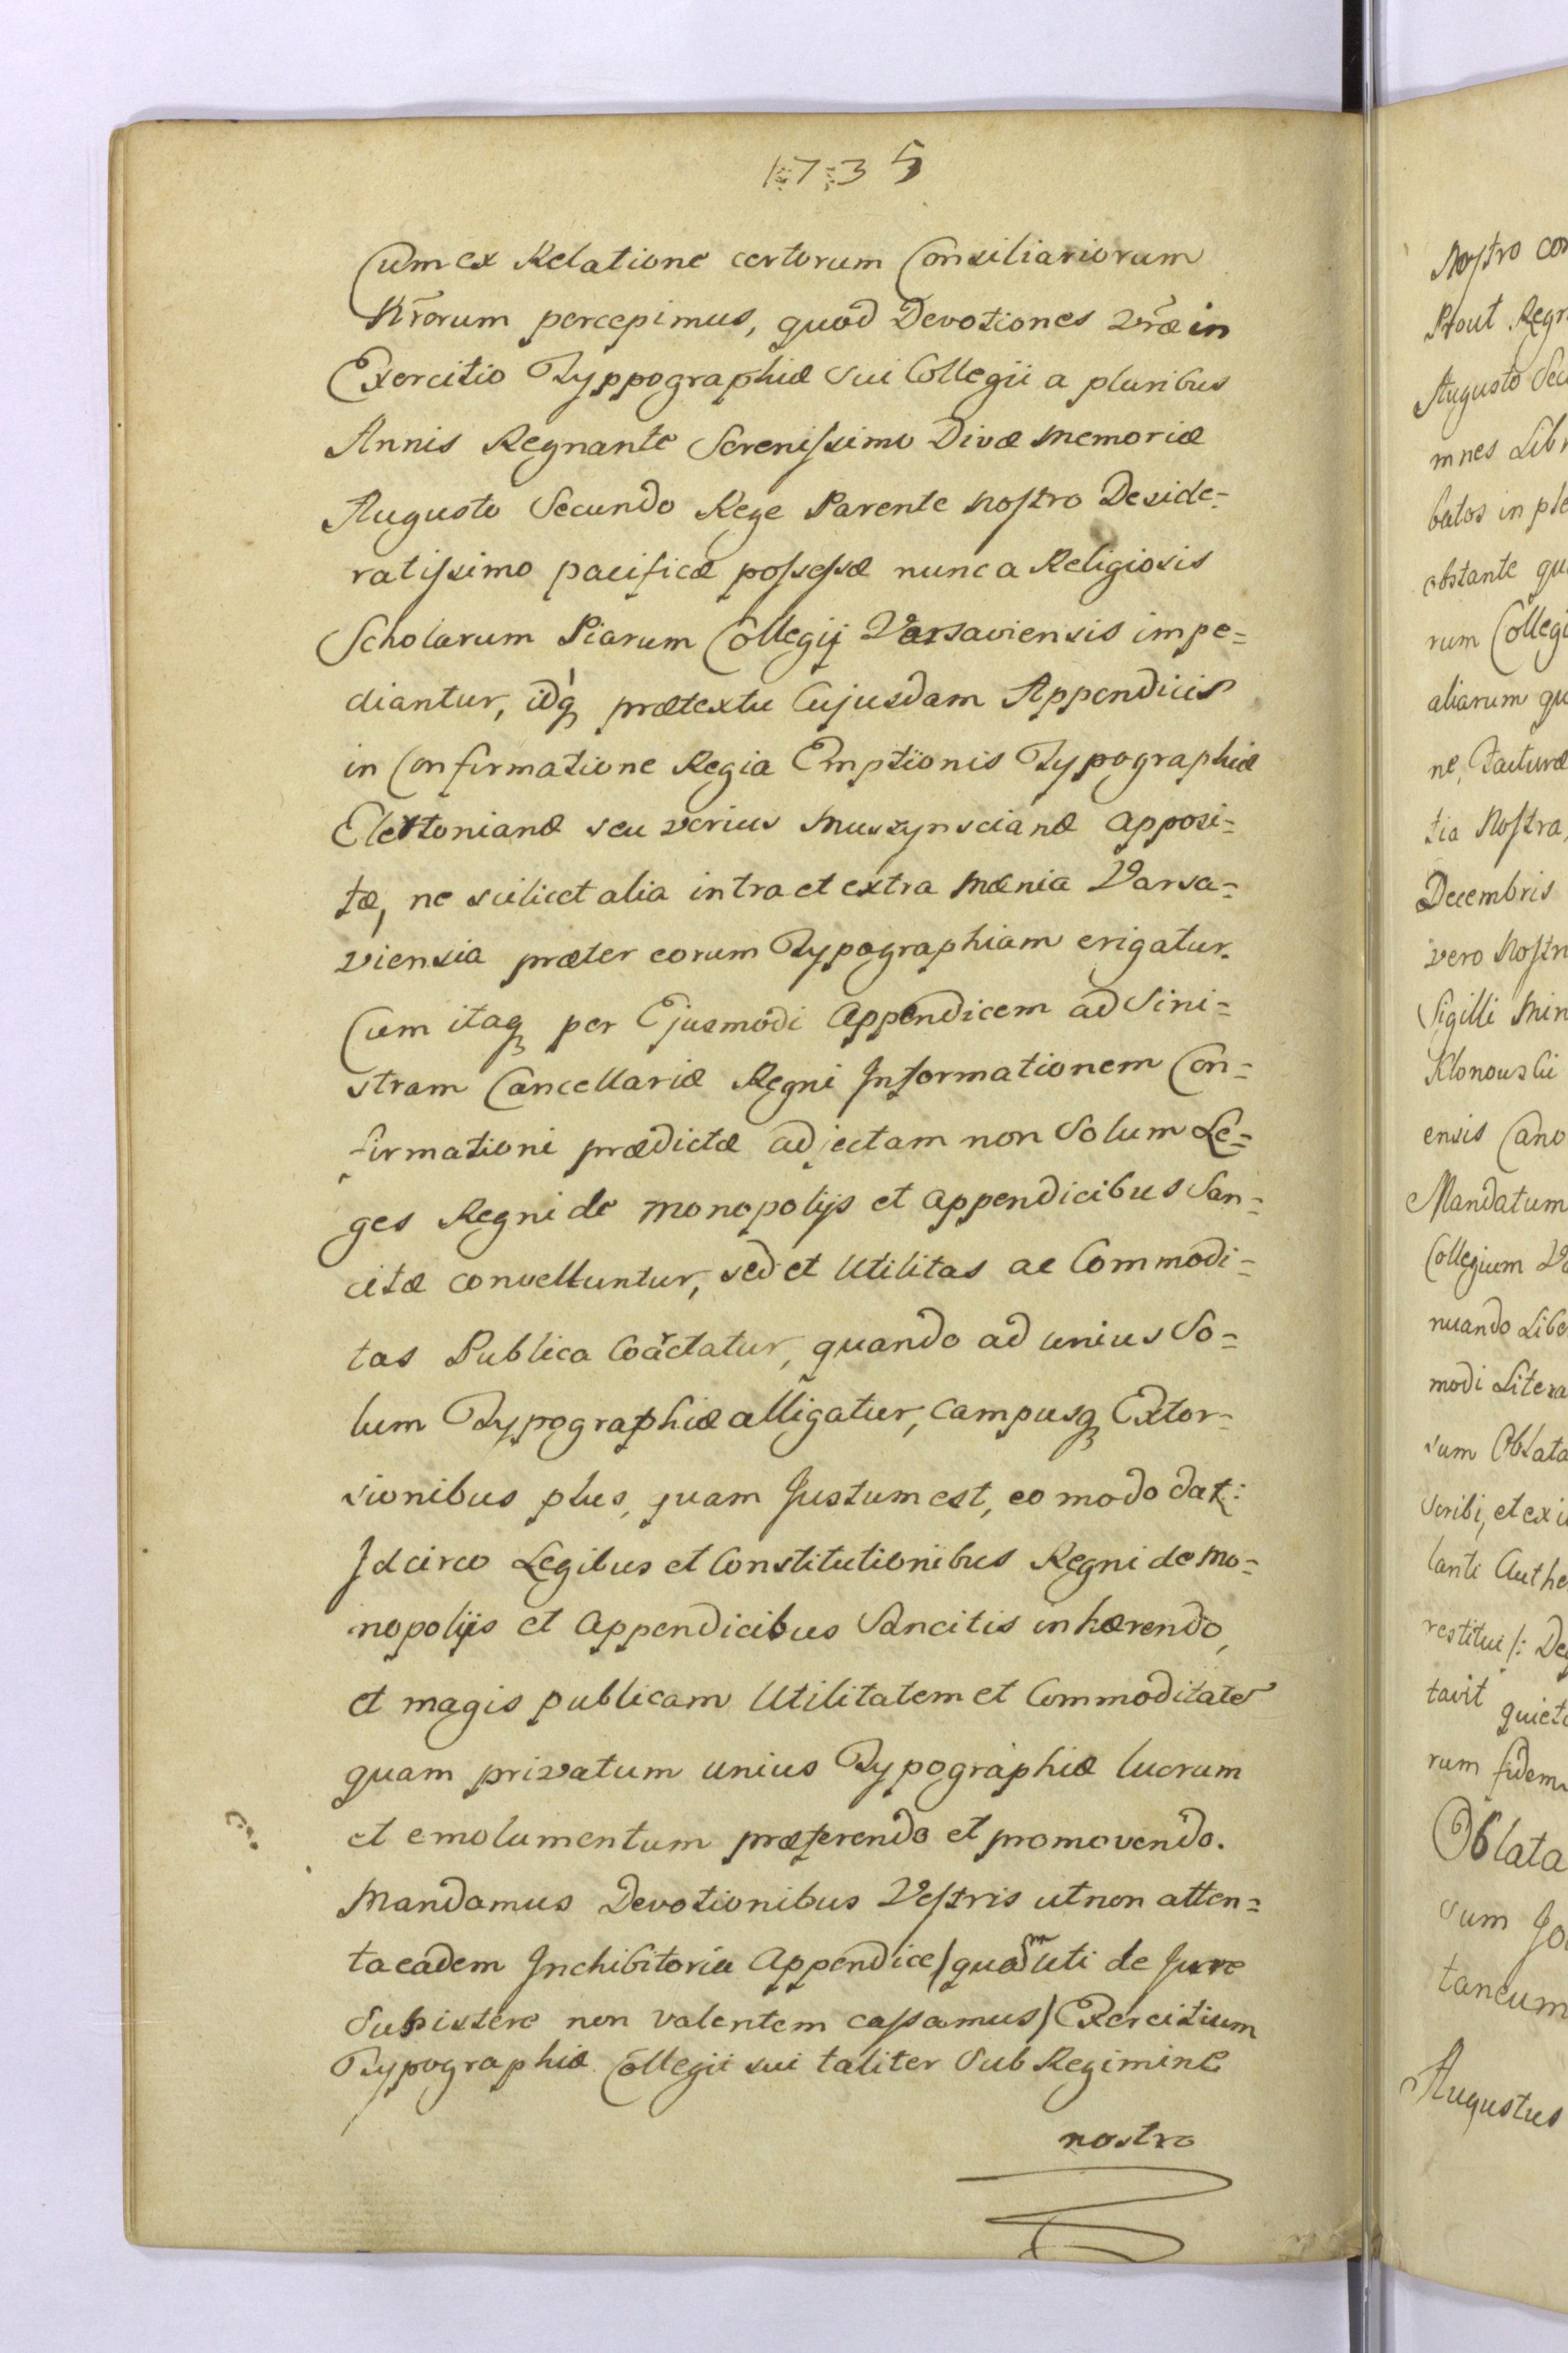 1735
Cum ex Relatione certorum Consiliariorum
Nr̃orum percepimus, quod Devotiones Vr̃æ in
Exercitio Typpographiæ sui Collegii a pluribus
Annis Regnante Sereniſsimo Divæ memoriæ
Augusto Secundo Rege Parente noſtro Deside-
ratiſsimo pacificæ poſseſsæ nunc a Religiosis
Scholarum Piarum Collegij Varsaviensis impe=
diantur, idq́ꝫ prætextu Cujusdam Appendicis
in Confirmatione Regia Emptionis Typographiæ
Elertonianæ seu verius Muszynscianæ apposi=
tæ, ne scilicet alia intra et extra mænia Varsa=
viensia præter eorum Typographiam erigatur.
Cum itaqꝫ per Ejusmodi appendicem ad Sini=
stram Cancellariæ Regni Informationem Con=
firmationi prædictæ adjectam non Solum Le=
ges Regni de monopolijs et appendicibus San=
citæ convelluntur, sed et Utilitas ac Commodi=
tas Publica Coarctatur, quando ad unius So=
lum Typographiæ alligatur, campusqꝫ Extor=
sionibus plus, quam Justum est, eo modo dat:
Idcirco Legibus et Constitutionibus Regni de mo=
nopolijs et appendicibus Sancitis inhærendo,
et magis publicam Utilitatem et Commoditate
quam privatum unius Typographiæ lucrum
et emolumentum præferendo et promovendo.
Mandamus Devotionibus Veſtris ut non atten=
ta eadem Inchibitoria appendice/ quadm uti de Jure
Subsistere non valentem caſsamus/ Exercitium
Typographiæ Collegii sui taliter Sub Regimine
nostro
Noſtro con
Prout Regn
Augusto Sec
mnes Libr
batos in ple
obstante qu
rum Collegi
aliarum qu
ne, Facturæ
tia Noſtra,
Decembris
vero Noſtr
Sigilli Min
Klonouski
ensis Cano
Mandatum
Collegium Va
nuando Libe
modi Litera
sum Oblata
scribi, et ex i
lanti Authe
restitui /: De
tavit quieta
rum fidem
Oblata
sum Jo
taneum
Augustus